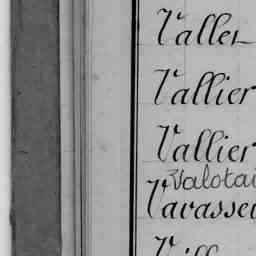 Valle
Vallier
Vallier
Valotai
Vavasse